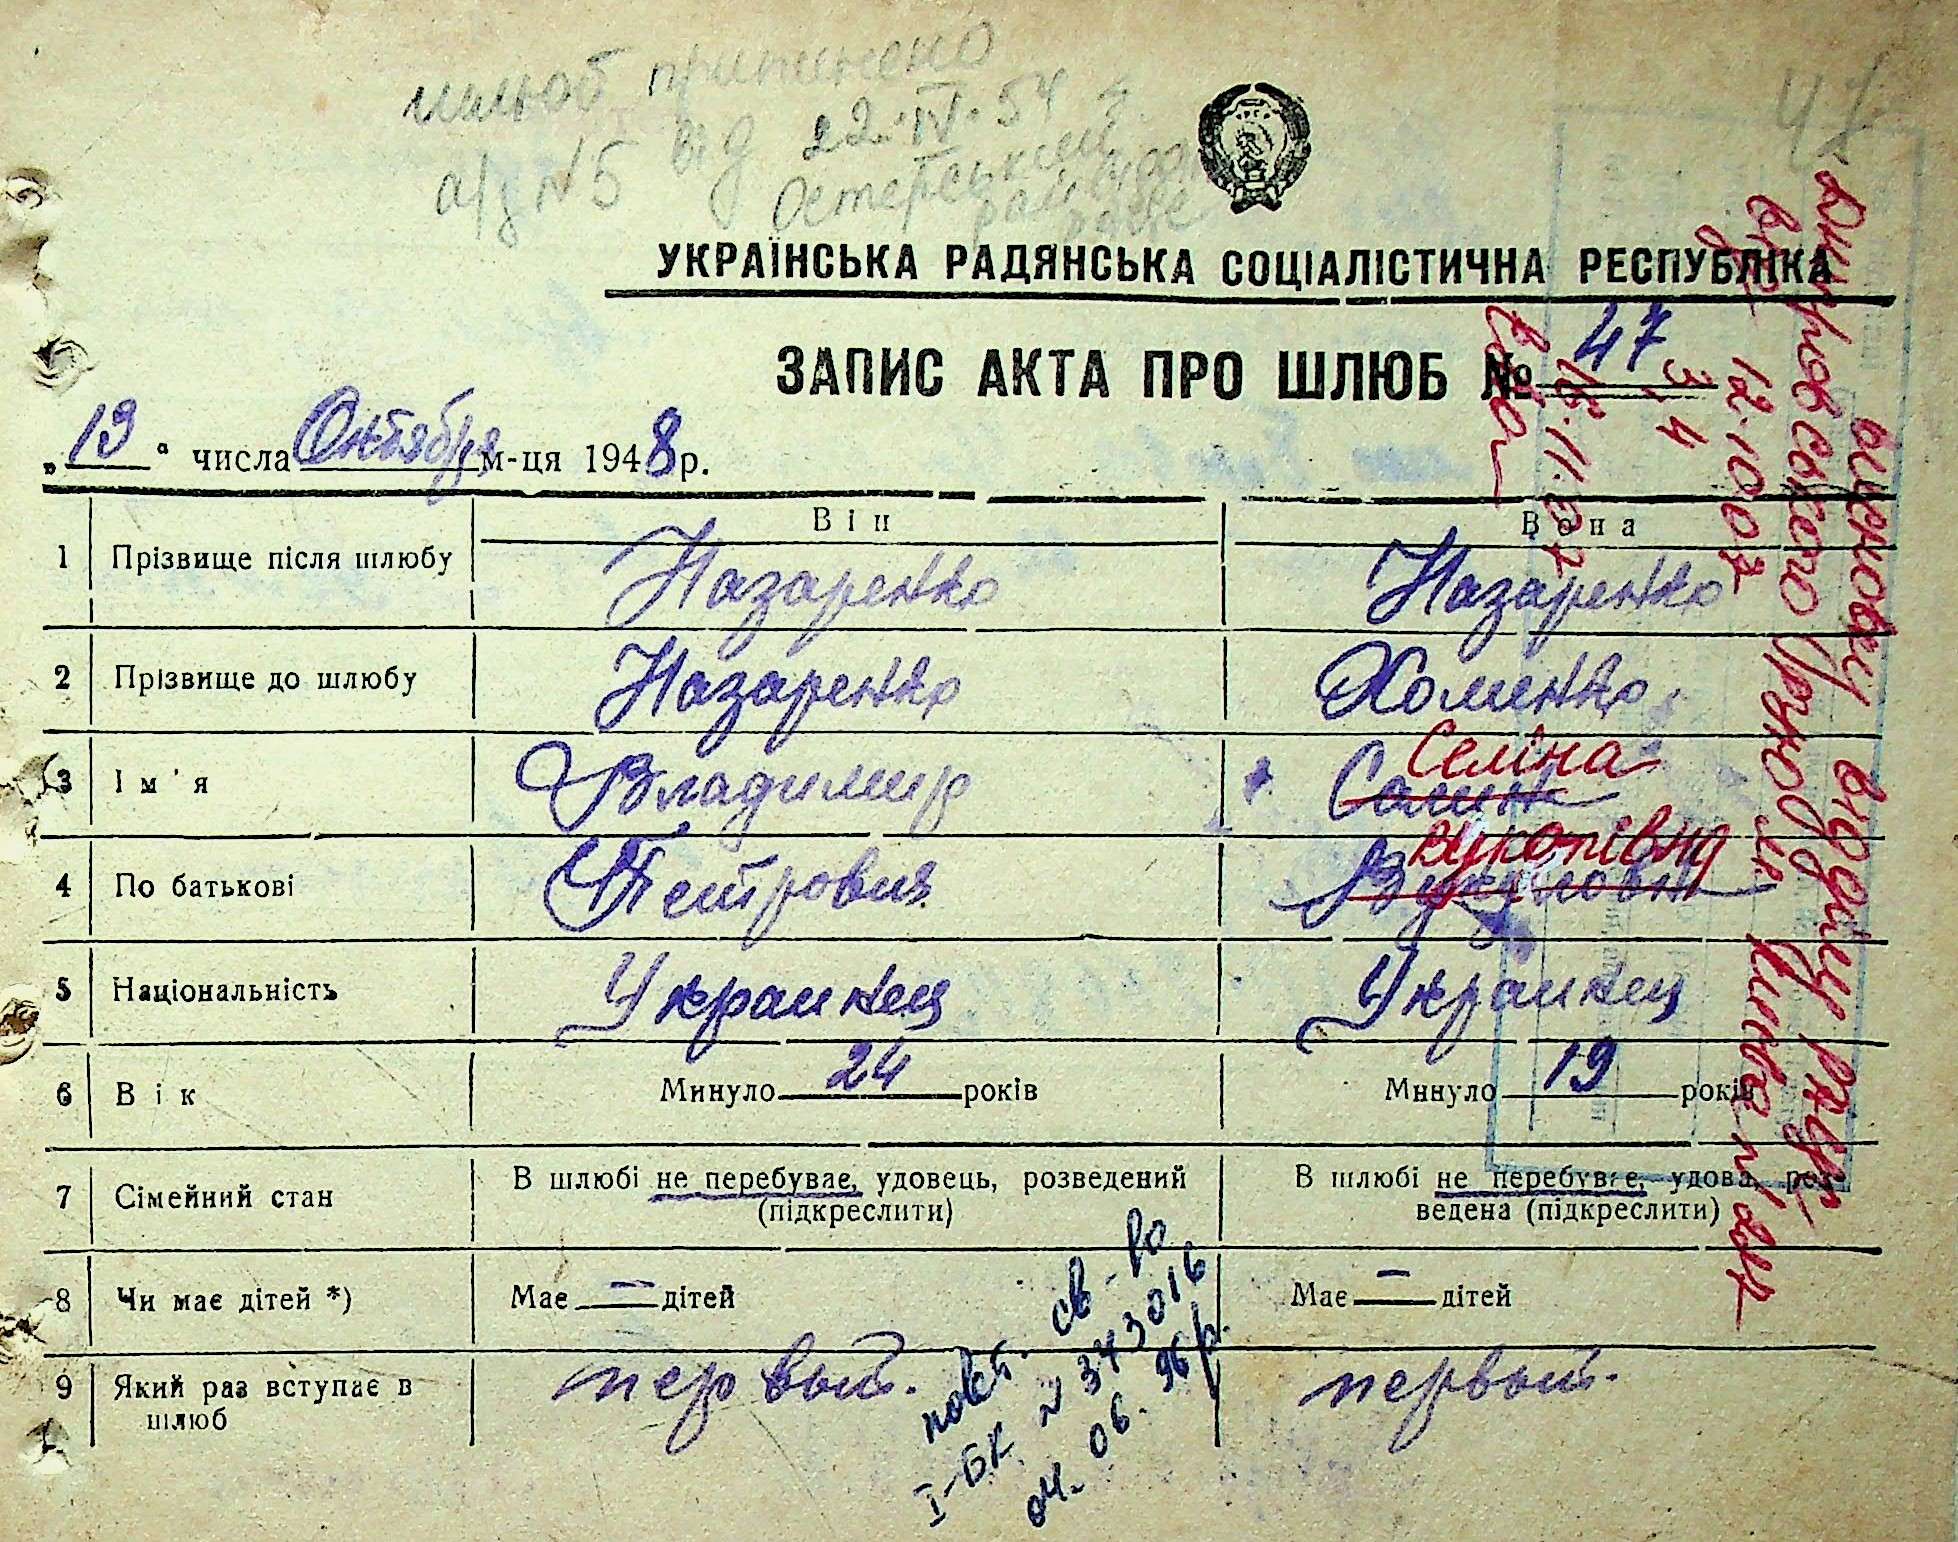 шлюб припинено
а/з №5 від 22.IV.54 р.
Остерським
47
УКРАЇНСЬКА РАДЯНСЬКА СОЦІАЛІСТИЧНА РЕСПУБЛІКА
ЗАПИС АКТА ПРО ШЛЮБ № 47
„19“ числа Октября м-ця 1948 р.
Він Вона
1 Прізвище після шлюбу Назаренко Назаренко
2 Прізвище до шлюбу Назаренко Хоменко
Селіна
3 Ім'я Владимир
Вуколівна
4 По батькові Петрович
5 Національність Украинец Украинец
6 Вік Минуло 24 років Минуло 19 років
7 Сімейний стан В шлюбі не перебуває, удовець, розведений (підкреслити) В шлюбі не перебуває, удова, роз-
ведена (підкреслити)
8 Чи має дітей *) Має — дітей Має — дітей
9 Який раз вступає в шлюб первый. первый.
повт. св-во
I-БК № 343016
04. 06. 96 р.
висновку відділу РАЦС
Дніпровського
від 12.10.07
3.4
16.11.07